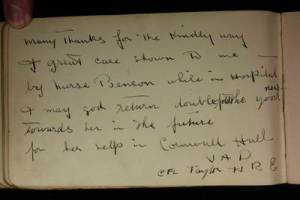 Many Thanks for the Kindly way
& great care shown to me
by Nurse Benson while in Hospital
& may god return double the good now
towards her in the future
for her help in Cornwall Hall
V A D
CPL Taylor H B E